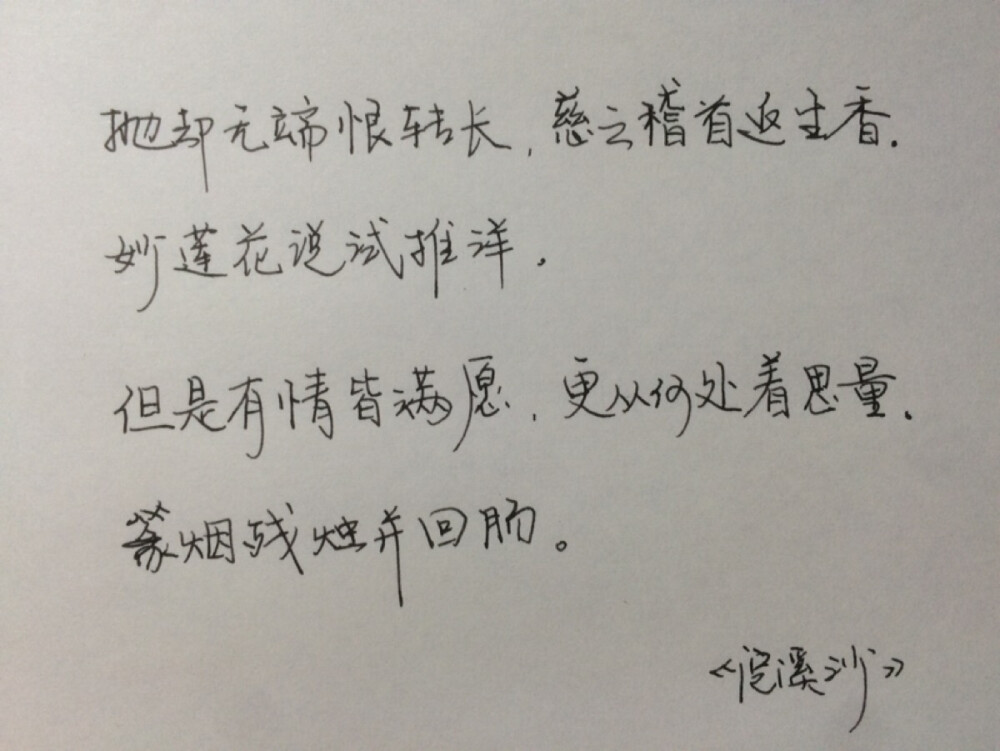 抛却无端恨转长，慈云稽首返生香.
妙莲花说试推洋.
但是有情皆满愿，更从何处着思量.
篆烟残烛并回肠。
《浣溪沙》